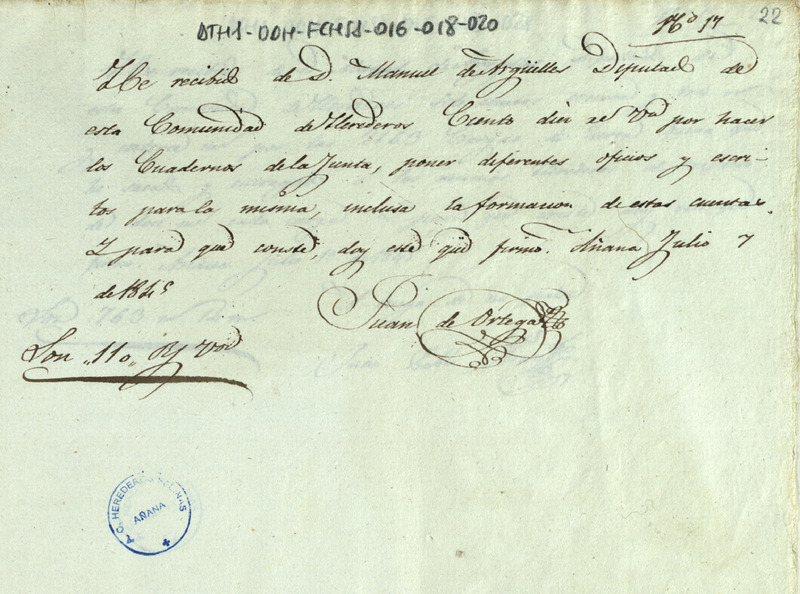 DTHS-DOH-FCHSS-016-018-020
Nº 17
22
He recibido de Dn Manuel de Argüelles Diputado de
esta Comunidad de Herederos Ciento diez rs Vn por hacer
los Cuadernos de la Junta, poner diferentes oficios y escri-
tos para la misma, inclusa la formacion de estas cuentas.
Y para que conste, doy este que firmo. Añana Julio 7
de 184
Juan de Ortega
Son "110" Rs Von
A. C. HEREDEROS SALINAS
AÑANA